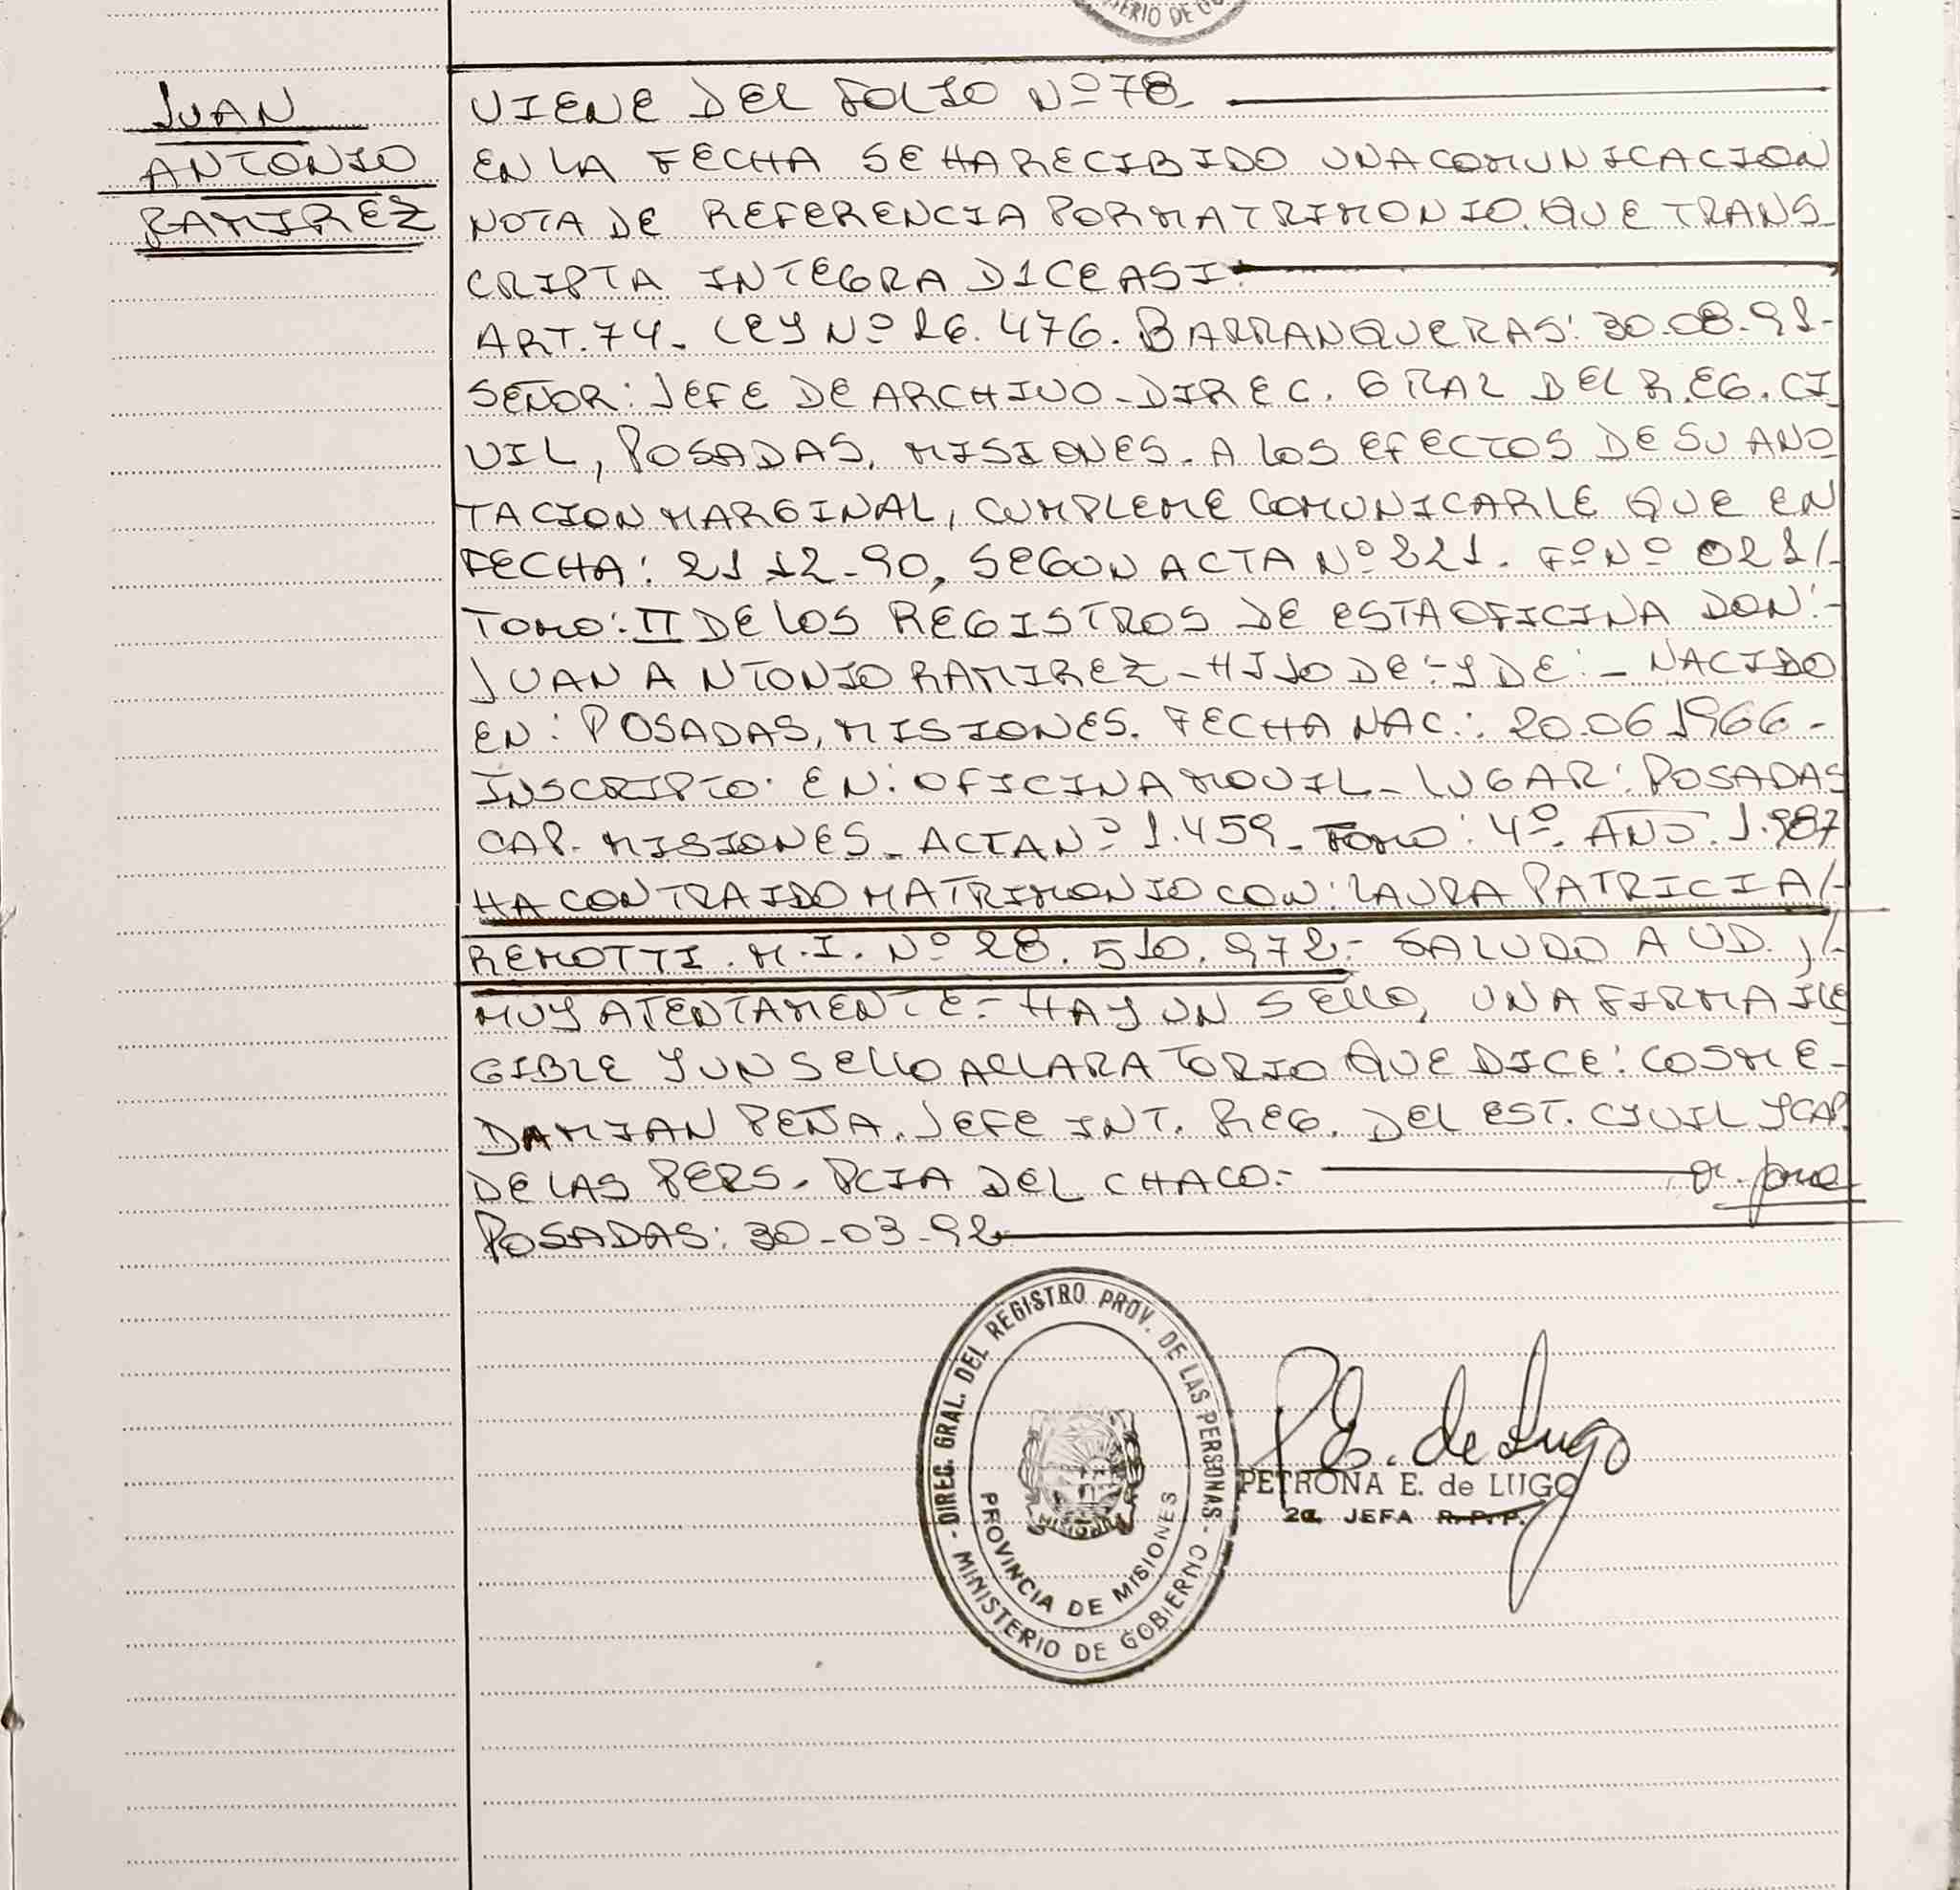 TERIO DE GO
JUAN
ANTONIO
RAMIREZ
VIENE DEL FOLIO Nº 78
EN LA FECHA SE HA RECIBIDO UNA COMUNICACION
NOTA DE REFERENCIA POR MATRIMONIO. QUE TRANS
CRIPTA INTEGRA DICE ASI:
ART. 74. LEY Nº 26.476. BARRANQUERAS: 30-08-91-
SEÑOR: JEFE DE ARCHIVO-DIREC. GRAL DEL REG. CI
VIL, POSADAS, MISIONES. A LOS EFECTOS DE SU ANO
TACION MARGINAL, CUMPLEME COMUNICARLE QUE EN
FECHA: 21-12-90, SEGUN ACTA Nº 221. Fº Nº 021/-
TOMO: II DE LOS REGISTROS DE ESTA OFICINA DON:-
JUAN ANTONIO RAMIREZ-HIJO DE:-Y DE:- NACIDO
EN: POSADAS, MISIONES. FECHA NAC.: 20-06-1966-
INSCRIPTO: EN: OFICINA MOVIL-LUGAR: POSADAS
CAP. MISIONES-ACTA Nº 1.459-TOMO: 4º. AÑO. 1.987
HA CONTRAIDO MATRIMONIO CON: LAURA PATRICIA/-
REMOTTI. M.I. Nº 28.510.972.- SALUDO A UD. ,/-
MUY ATENTAMENTE.- HAY UN SELLO, UNA FIRMA ILE
GIBLE Y UN SELLO ACLARATORIO QUE DICE: COSME-
DAMIAN PEÑA. JEFE INT. REG. DEL EST. CIVIL Y CAP.
DE LAS PERS. PCIA DEL CHACO.-
POSADAS: 30-03-92
- DIREC. GRAL. DEL REGISTRO PROV. DE LAS PERSONAS -
MINISTERIO DE GOBIERNO
PROVINCIA DE MISIONES
MISIONES
P.E. de Lugo
PETRONA E. de LUGO
2a JEFA R.P.P.